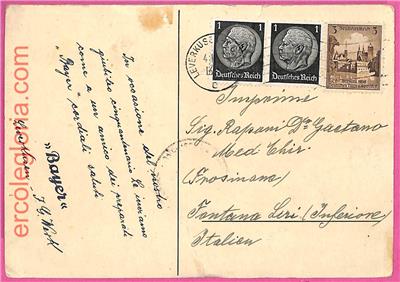 ercolegloria.com
In occasione del nostro
giubileo cinquantenario Le inviamo
come a un amico dei preparati
"Bayer" cordiali saluti
"Bayer"
Leverkusen - I. G. Werk
LEVERKUS
1
1
3
Deutsches Reich
Deutsches Reich
Imprimé
Sig. Rapani Dr Gaetano
Med Chir.
(Frosinone)
Fontana Liri (Inferiore)
Italien